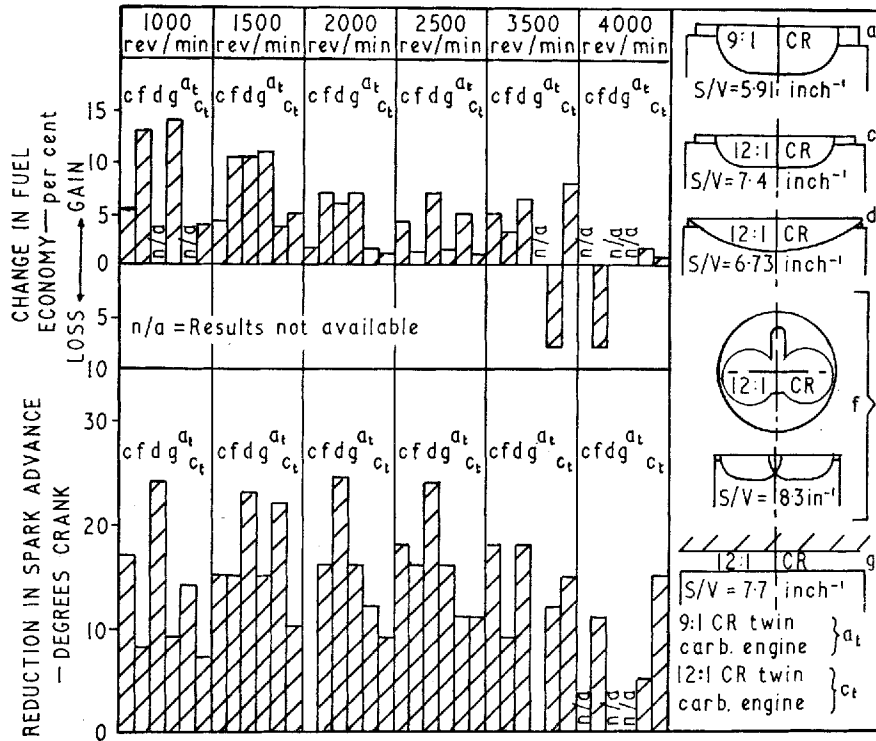 1000 rev/min
1500 rev/min
2000 rev/min
2500 rev/min
3500 rev/min
4000 rev/min
CHANGE IN FUEL
ECONOMY — per cent
LOSS ⟷ GAIN
15
10
5
0
5
10
c f d g a_t c_t
c f d g a_t c_t
c f d g a_t c_t
c f d g a_t c_t
c f d g a_t c_t
c f d g a_t c_t
n/a
n/a
n/a
n/a
n/a
n/a
n/a = Results not available
REDUCTION IN SPARK ADVANCE
— DEGREES CRANK
30
20
10
0
c f d g a_t c_t
c f d g a_t c_t
c f d g a_t c_t
c f d g a_t c_t
c f d g a_t c_t
c f d g a_t c_t
n/a
n/a
n/a
9:1 CR
a
S/V=5·91 inch⁻¹
12:1 CR
c
S/V=7·4 inch⁻¹
12:1 CR
d
S/V=6·73 inch⁻¹
12:1 CR
f
S/V= 8·3in⁻¹
12:1 CR
g
S/V=7·7 inch⁻¹
9:1 CR twin
carb. engine } a_t
12:1 CR twin
carb. engine } c_t